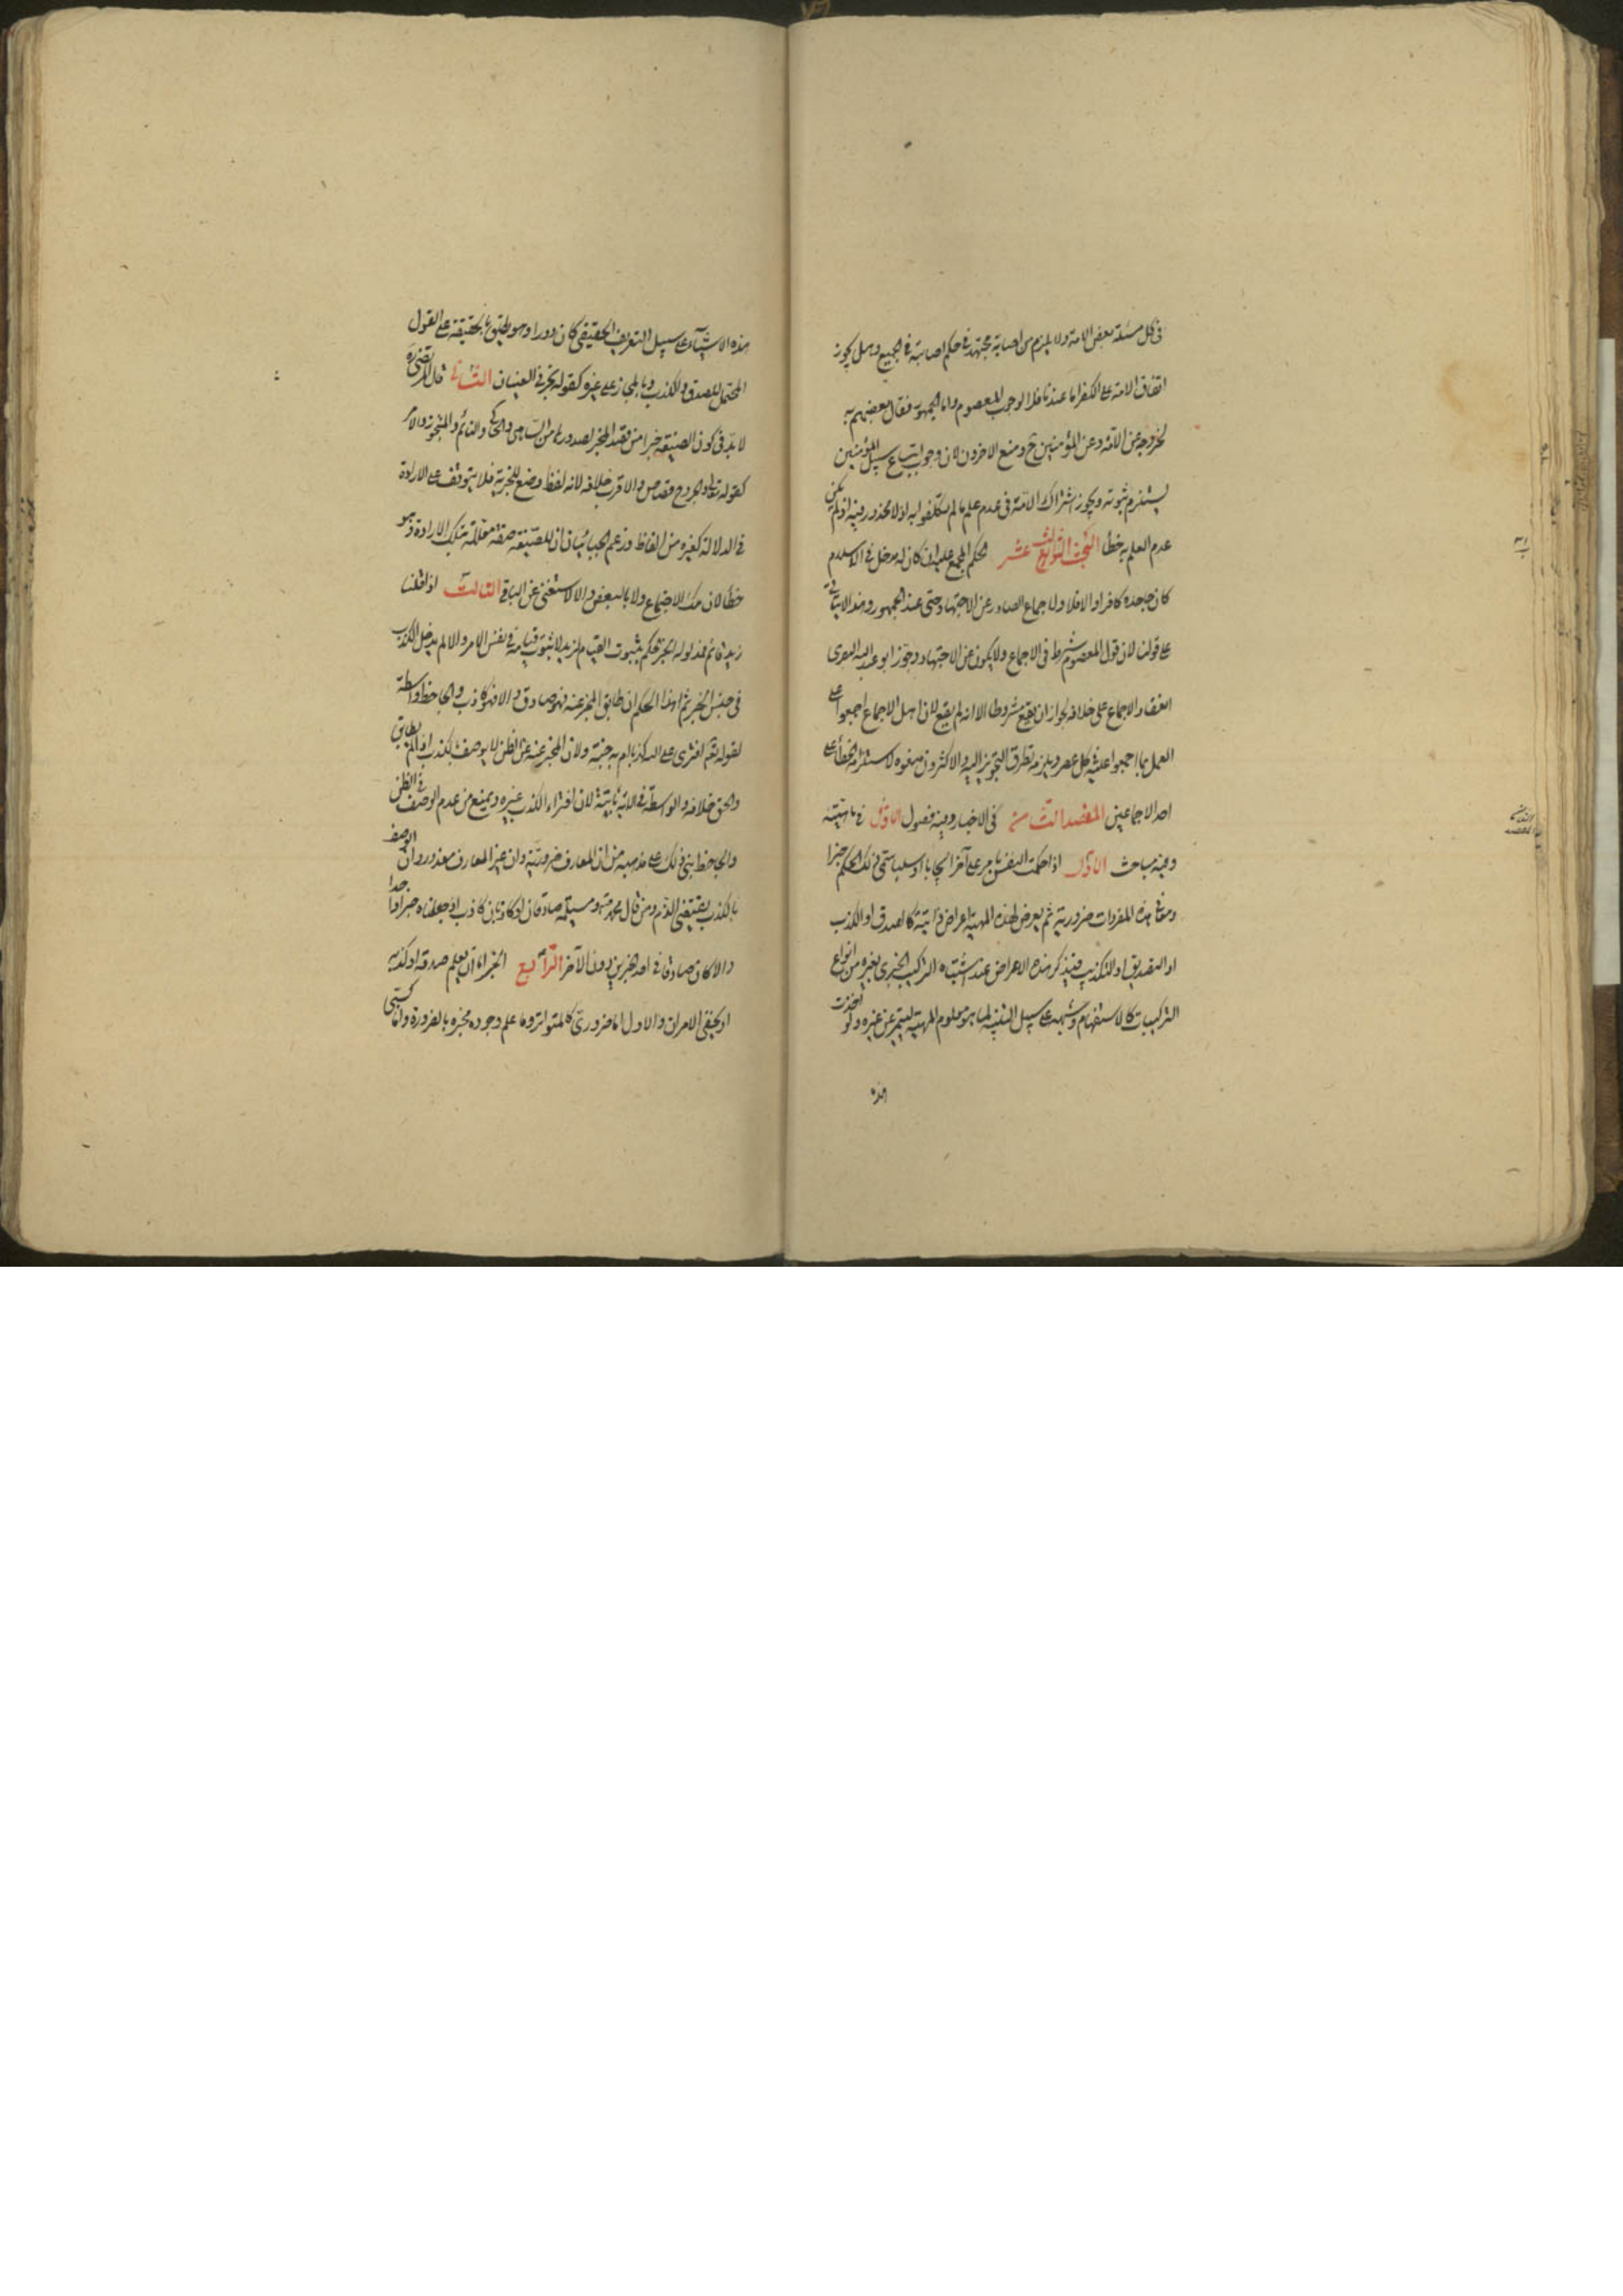 في كل مسئلة بعض الامة ولا يلزم من اصابة مجتهد في حكم اصابته في الجميع وهل يجوز
اتفاق الامة على الكفر اما عندنا فلا لوجوب المعصوم واما الجمهور فقال بعضهم به
لخروجه عن الامة وعن المؤمنين ح ومنع الاخرون لان وجوب اتباع سبيل المؤمنين
يستلزم ثبوته ويجوز اشتراك الامة في عدم علم ما لم يكلفوا به اذ لا محذور فيه اذ لم يكن
عدم العلم به خطأ البحث الرابع عشر الحكم المجمع عليه ان كان له مدخل في الاسلام
كان جاحده كافرا والا فلا ولا جماع الصادر عن الاجتهاد حتى عند الجمهور وهذا لا يتأتى
على قولنا لان قول المعصوم شرط في الاجماع ولا يكون عن الاجتهاد وجوز ابو عبد الله البصري
انعقاد الاجماع على خلافه لجواز ان يقع مشروطا الا انه لم يقع لان اهل الاجماع اجمعوا على
العمل بما اجمعوا عليه في كل عصر ويلزمه تطرق التجويز اليه والاكثرون منعوه لاستلزامه الخطأ على
احد الاجماعين المقصد الثامن في الاخبار وفيه فصول الاول في ماهيته
وفيه مباحث الاول اذا حكمت النفس بامر على آخر ايجابا او سلبا سمي ذلك الحكم خبرا
ومعاني هذه المفردات ضرورية ثم يعرض لهذه المهية اعراض ذاتية كالصدق او الكذب
او التصديق او التكذيب فيذكر هذه الاعراض عند اشتباه التركيب الخبري بغيره من انواع
التركيبات كالاستفهام وشبهه على سبيل التنبيه لما هو معلوم المهية ليتميز عن غيره ولو اخذت
هذه الاشياء على سبيل التعريف الحقيقي كان دورا وهو يطلق بالحقيقة على القول
المحتمل للصدق والكذب وبالمجاز على غيره كقوله تخبرني العينان الثاني قال المرتضى ره
لا بد في كون الصيغة خبرا من قصد المخبر لصدورها من الساهي والحاكي والنائم والمتجوز والامر
كقوله تعالى والجروح قصاص والاقرب خلافه لانه لفظ وضع للخبرية فلا يتوقف على الارادة
في الدلالة كغيره من الفاظ وزعم الجبائيان ان للصيغة صفة معللة بتلك الارادة وهو
خطأ لان تلك الاجتماع ولا بالبعض والا لاستغنى عن الباقي الثالث اذا قلنا
زيد قائم فمدلوله الخبر حكم بثبوت القيام لزيد لا ثبوت قيامه في نفس الامر والا لم يدخل الكذب
في جنس الخبر ثم هذا الحكم ان طابق المخبر عنه فهو صادق والا فهو كاذب والجاحظ واسطة
لقوله تعم افترى على الله كذبا ام به جنة ولان المخبر عنه عن الظن لا يوصف بكذب اذا لم يطابق
والحق خلافه والواسطة في الاية ثابتة لان افتراء الكذب غيره ويمنع من عدم الوصف في الظن
والجاحظ بنى ذلك على مذهبه من ان المعارف ضرورية وان غير المعارف معذور وان الوصف
بالكذب يقتضي الذم ومن قال محمد ومسيلمة صادقان او كاذبان كاذب ان جعلناه خبرا واحدا
والا كان صادقا في احد الخبرين دون الآخر الرابع الخبر اما ان يعلم صدقه او كذبه
او يخفى الامران والاول اما ضروري كالمتواتر وما علم وجود مخبره بالضرورة واما كسبي